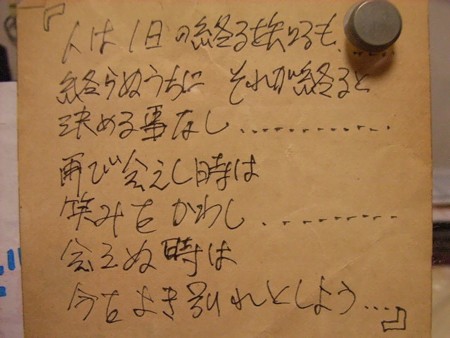 『人は1日の終る時いるも、
終らぬうちに それが終ると
決める事なし............
再び会えし時は
笑みをかわし.........
会えぬ時は
今をよき別れとしよう....』